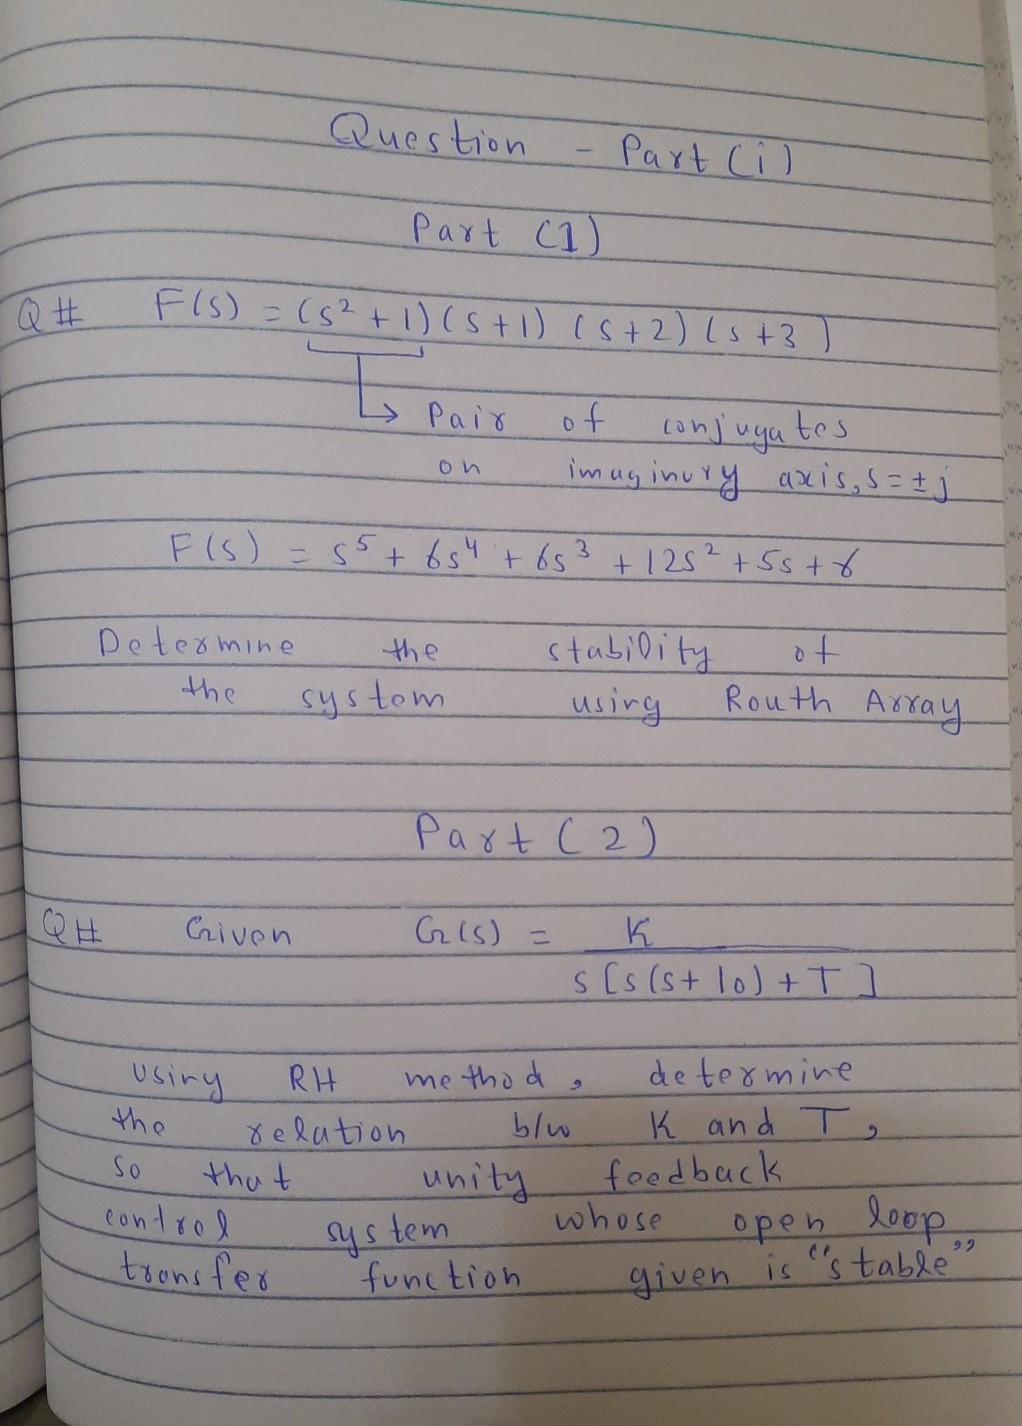 Question - Part (i)
Part (1)
Q# F(s) = (s² + 1) (s+1) (s+2) (s+3)
Pair of conjugates
on imaginary axis, s = ± j
F(s) = s⁵ + 6s⁴ + 6s³ + 12s² + 5s + 6
Determine the stability of
the system using Routh Array
Part (2)
Q# Given G(s) = K
s [s(s+10) + T]
Using RH method, determine
the relation b/w K and T,
so that unity feedback
control system whose open loop
transfer function given is "stable"